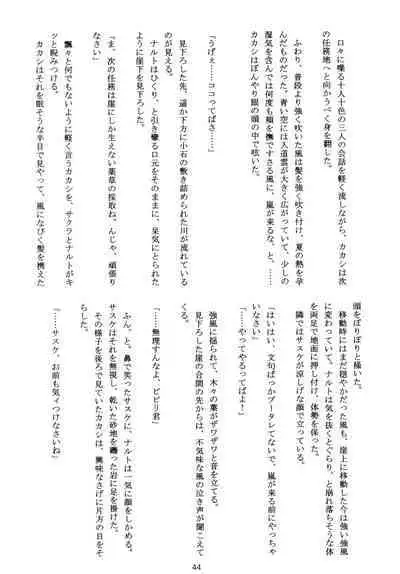 口々に喋る十人十色の三人の会話を軽く流しながら、カカシは次
の任務地へと向かうべく身を翻した。
ふわり、普段より強く吹いた風は髪を強く吹き付け、夏の熱を孕
んだものだった。青い空には入道雲が大きく広がっていて、少しの
湿気を含んでは何度も頬を撫でてすさる風に、嵐が来るな、と、……
カカシはぼんやり眼の頭の中で呟いた。
「うげぇ……ココってばさ……」
見下ろした先、遥か下方に小石の敷き詰められた川が流れている
のが見える。
ナルトはひくり、と引き攣る口元をそのままに、呆気にとられた
ように崖下を見下ろした。
「ま、次の任務は崖にしか生えない薬草の採取ね、んじゃ、頑張り
なさい」
飄々と何でもないように軽く言うカカシを、サクラとナルトがキ
ッと睨みつける。
カカシはそれを眠そうな半目で見やって、風になびく髪を携えた
頭をぽりぽりと掻いた。
移動時にはまだ穏やかだった風も、崖上に移動した今は強い強風
に変わっていて、ナルトは気を抜くとぐらり、と崩れ落ちそうな体
を両足で地面に押し付け、体勢を保った。
隣ではサスケが涼しげな顔で立っている。
「はいはい、文句ばっかブータレてないで、嵐が来る前にやっちゃ
いなさい」
「……やってやるってばよ！」
強風に揺られて、木々の葉がザワザワと音を立てる。
見下ろした崖の合間の先からは、不気味な風の泣き声が聞こえて
くる。
「……無理すんなよ、ビビリ君」
ふん、と、鼻で笑ったサスケに、ナルトは一気に顔をしかめる。
サスケはそれを無視し、乾いた砂地を踏って岩に足を掛けた。
その様子を後ろで見ていたカカシは、興味なさげに片方の目をそ
らした。
「……サスケ、お前も気ィつけなさいね」
44